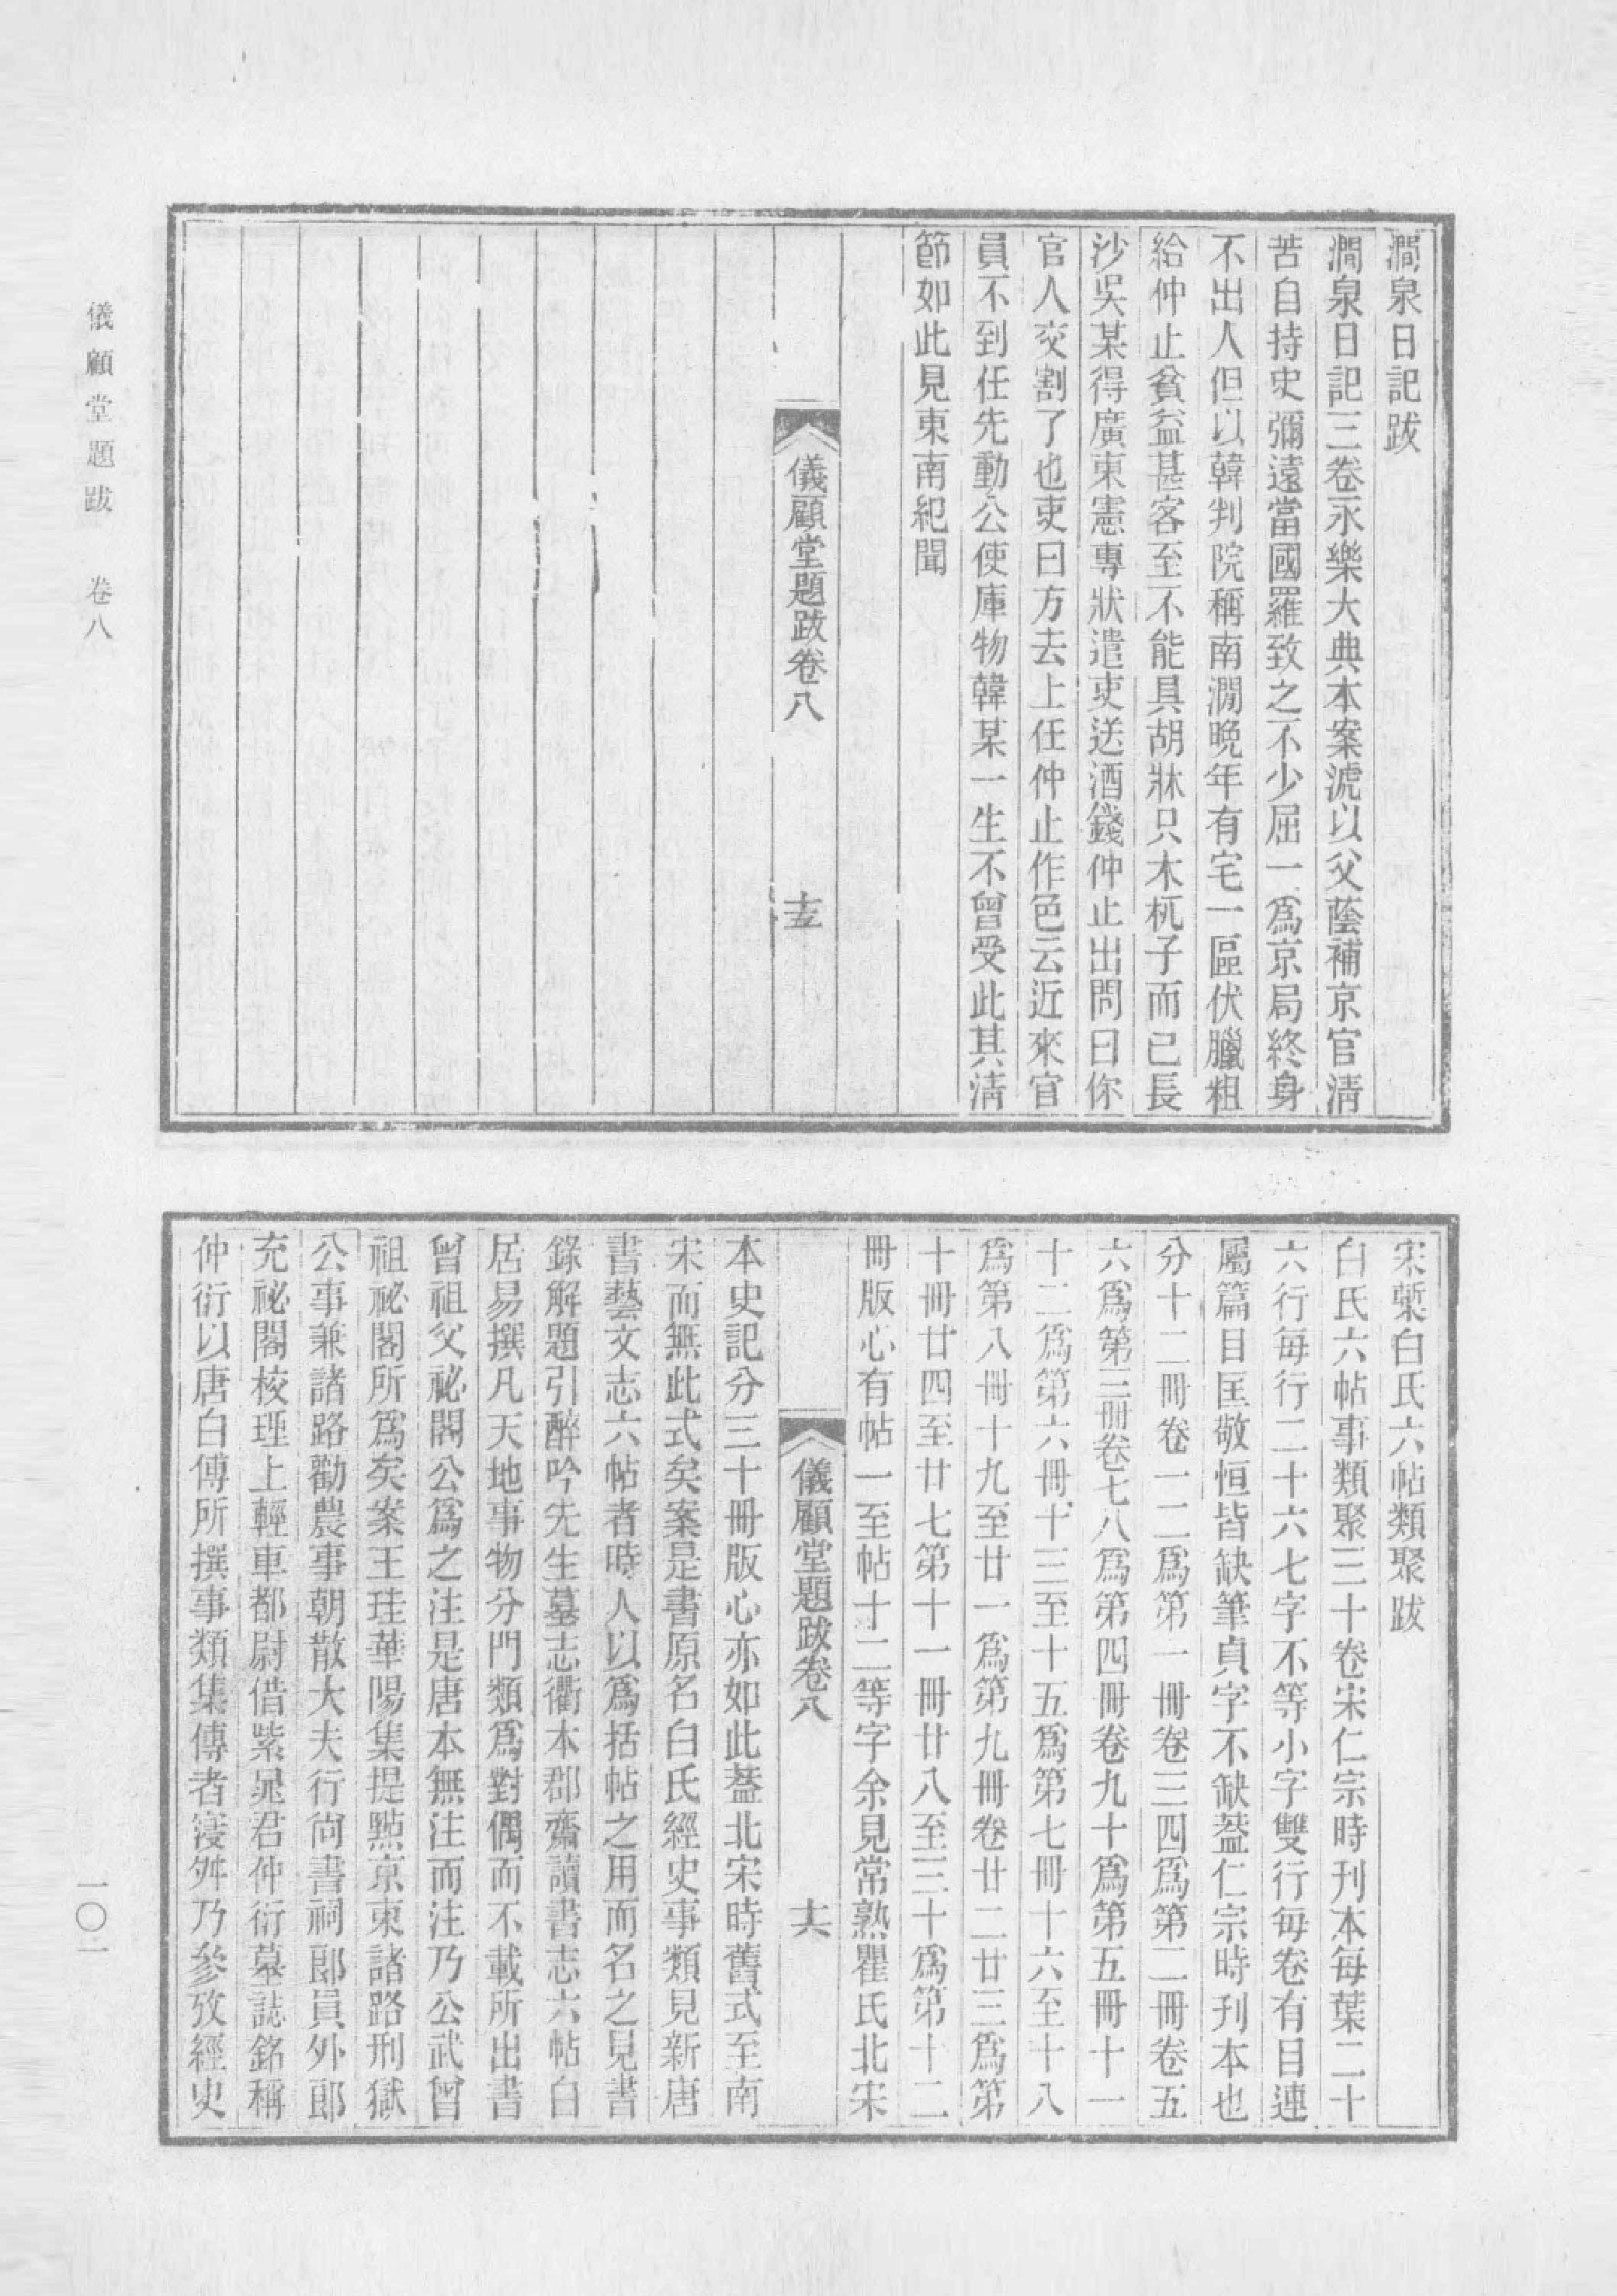 澗泉日記跋
澗泉日記三卷永樂大典本案淲以父蔭補京官淸
苦自持史彌遠當國羅致之不少屈一爲京局終身
不出人但以韓判院稱南澗晚年有宅一區伏臘粗
給仲止貧益甚客至不能具胡牀只木杌子而已長
沙吳某得廣東憲專狀遣吏送酒錢仲止出問曰你
官人交割了也吏曰方去上任仲止作色云近來官
員不到任先動公使庫物韓某一生不曾受此其淸
節如此見東南紀聞
儀顧堂題跋卷八
十五
宋槧白氏六帖類聚跋
白氏六帖事類聚三十卷宋仁宗時刊本每葉二十
六行每行二十六七字不等小字雙行每卷有目連
屬篇目匡敬恒皆缺筆貞字不缺葢仁宗時刊本也
分十二冊卷一二爲第一冊卷三四爲第二冊卷五
六爲第三冊卷七八爲第四冊卷九十爲第五冊十一
十二爲第六冊十三至十五爲第七冊十六至十八
爲第八冊十九至廿一爲第九冊卷廿二廿三爲第
十冊廿四至廿七第十一冊廿八至三十爲第十二
冊版心有帖一至帖十二等字余見常熟瞿氏北宋
儀顧堂題跋卷八
十六
本史記分三十冊版心亦如此葢北宋時舊式至南
宋而無此式矣案是書原名白氏經史事類見新唐
書藝文志六帖者時人以爲括帖之用而名之見書
錄解題引醉吟先生墓志衢本郡齋讀書志六帖白
居易撰凡天地事物分門類爲對偶而不載所出書
曾祖父祕閣公爲之注是唐本無注而注乃公武曾
祖祕閣所爲矣案王珪華陽集提點京東諸路刑獄
公事兼諸路勸農事朝散大夫行尚書祠部員外郎
充祕閣校理上輕車都尉借紫晁君仲衍墓誌銘稱
仲衍以唐白傅所撰事類集傳者寖舛乃參攷經史
儀顧堂題跋 卷八
一〇一